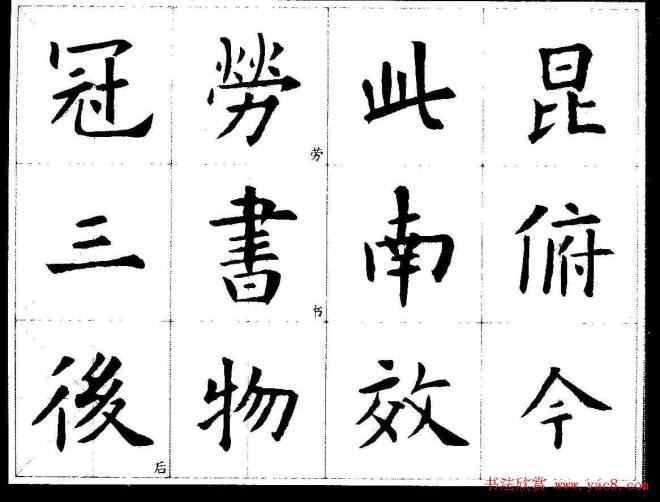 昆俯今
此南效
勞劳書书物
冠三後后
书法欣赏 www.yac8.com